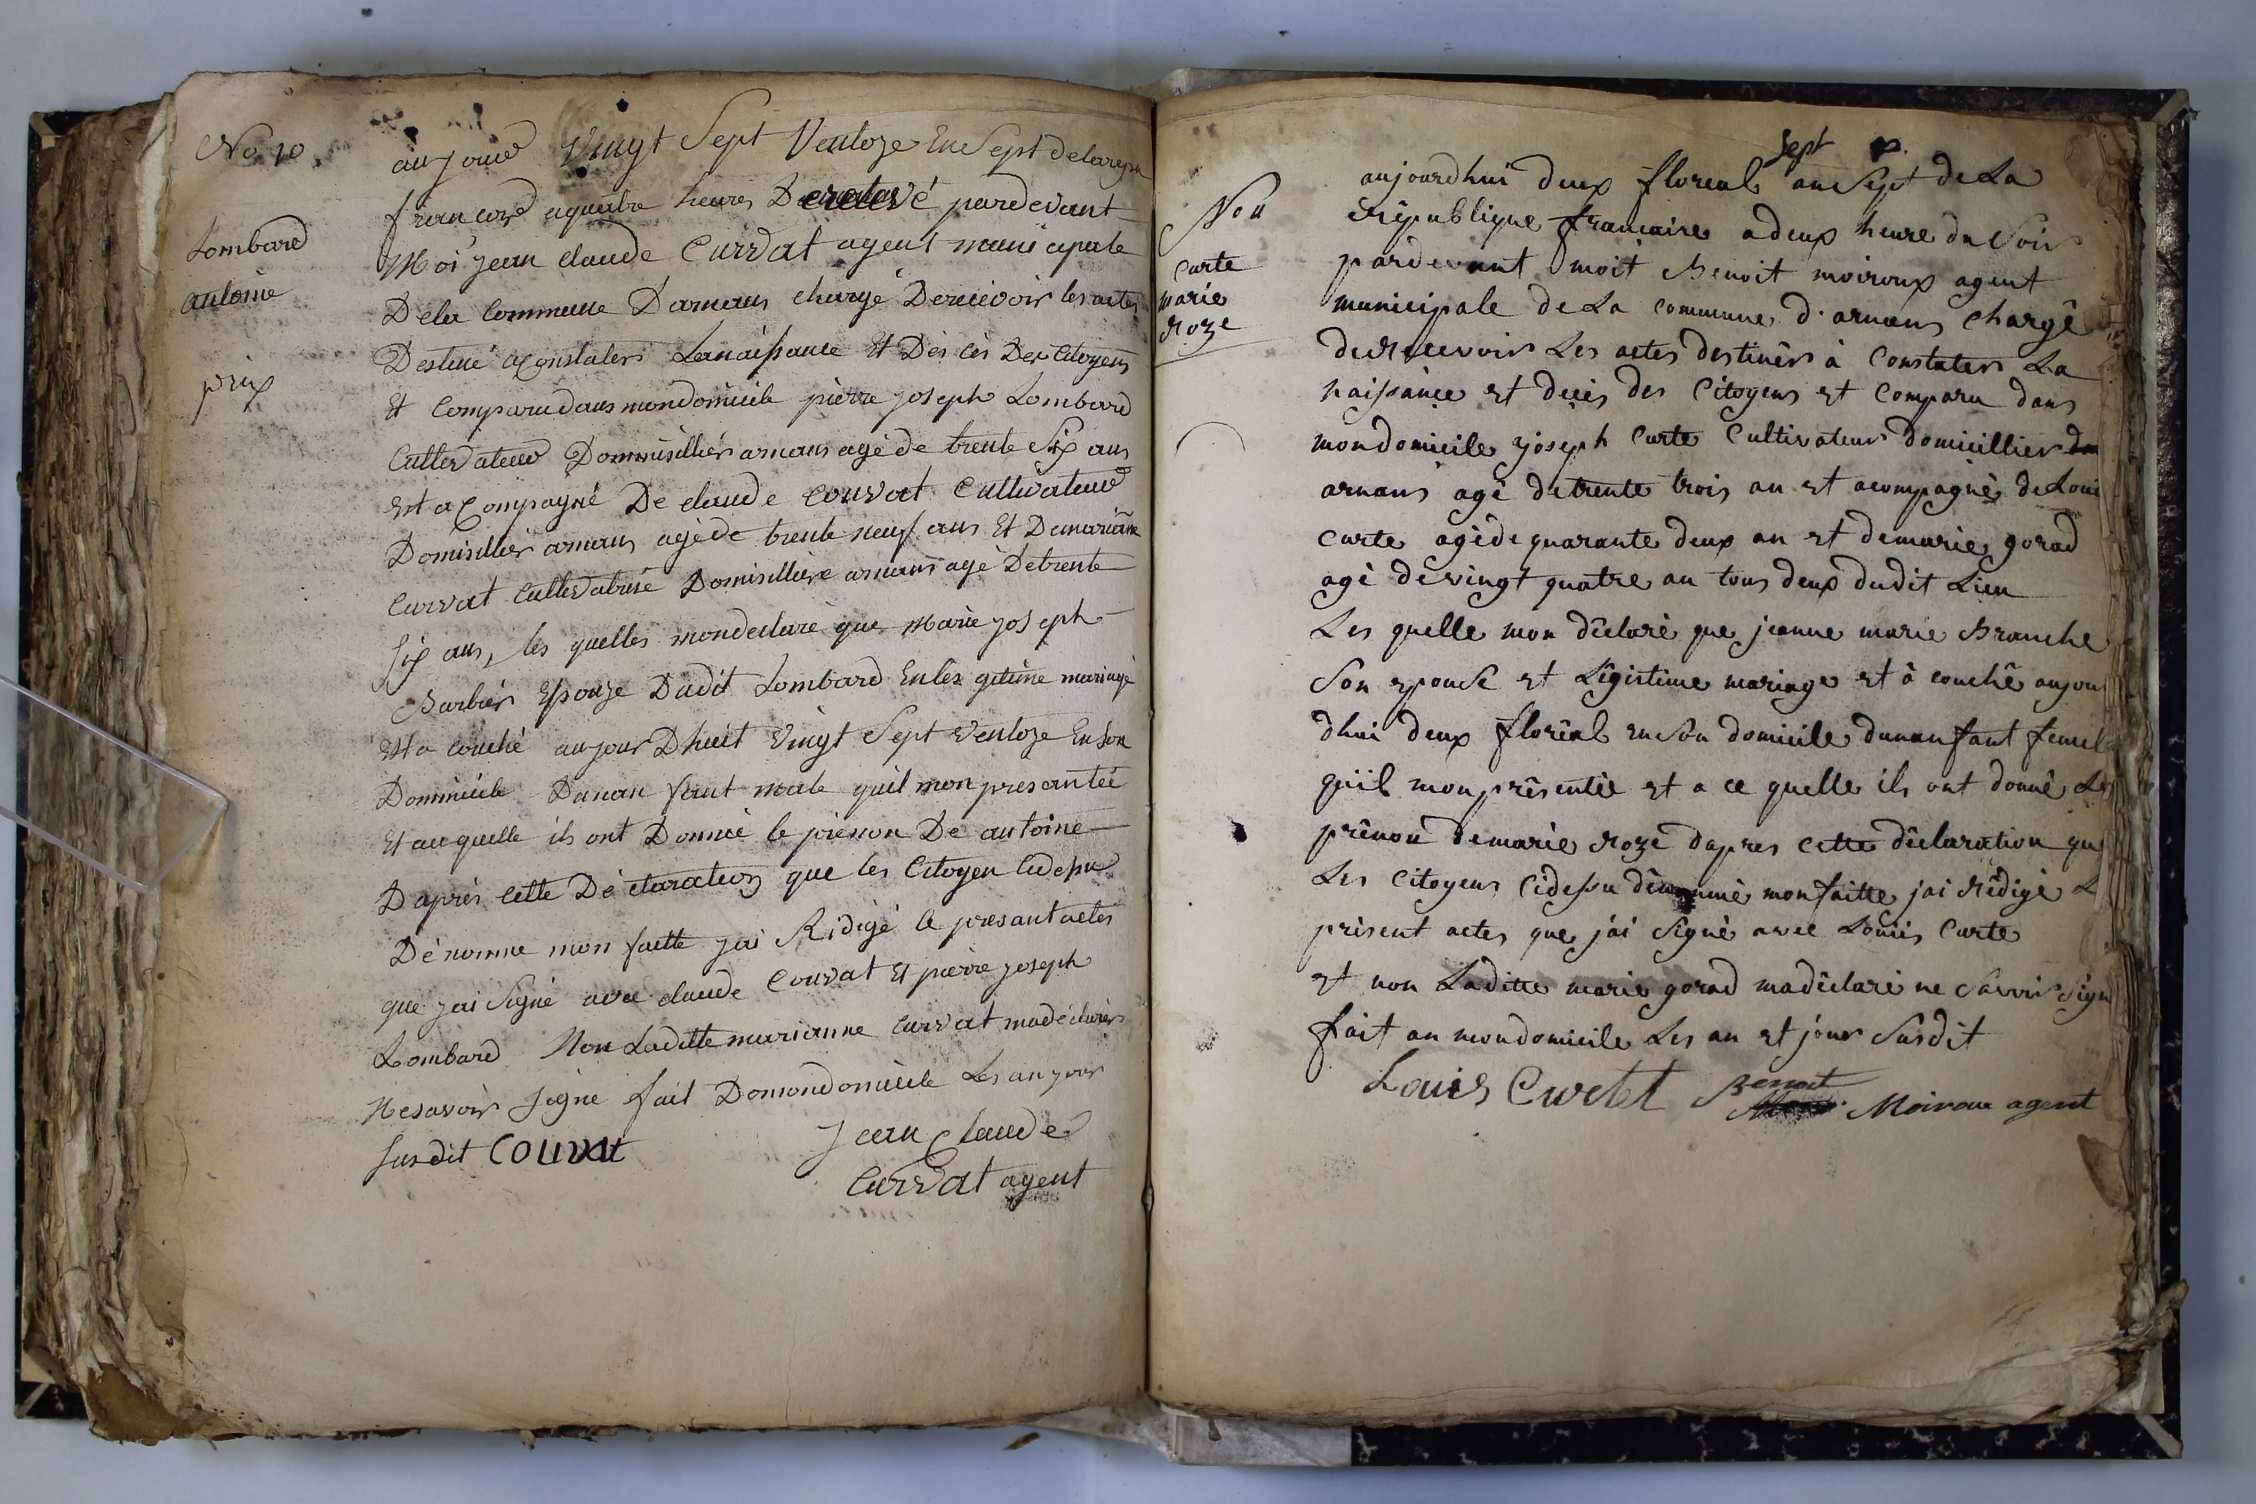 No 10
Lombard
antoine
aujourd Vingt Sept Ventoze En Sept delarepu
francois aquatre heures pardevant
Moi jean claude Curvat agent municipale
Dela Commune Darnans chargé Derecevoir les actes
Destiné aconstater Lanaissance Et Des cès Des Citoyens
Et Comparu dans mondomicile pierre joseph Lombard
Cultivateur Domisillier arnans agé de trente Six ans
Est acompagné De claude Couvat Cultivateur
Domisillier arnans agéde trente neuf ans Et Demariane
Curvat Cultivatrise Domisilliere arnans agé Detrente
Six ans, les quelles mondeclaré que Marie joseph
Barbier Epouze Dudit Lombard Enlex gitime mariage
Est a couché aujour Dhuit Vingt Sept Ventoze En son
Dommicile Dunan fant male quil mon presantée
Et au quelle ils ont Donnée le prenon De antoine
Daprés cette Déclaration que les Citoyen Cidesu
Dénomme mon faitte jai Ridigé le presant actes
que jai Signé avec claude Couvat Et pierre joseph
Lombard Non Laditte marianne Curvat madéclarér
Nesavoir Signé fait Domondomicile Les an jour
Susdit Couvat
Jean Claude
Curvat agent
Sept
Curte
marie
roze
aujourdhui deux floreal an Sept de La
république francaise a deux heure du Soir
pardevant moit Benoit moiroux agent
municipale de La commune d'arnans chargé
de recevoir Les actes destinés à Constater La
naissance et décés des Citoyens et Comparu dans
mondomicile joseph Curte Cultivateur domicillier
arnans agé de trente trois an et acompagné de Loui
Curte agé de quarante deux an et demarie gorad
agé de vingt quatre an tous deux dudit Lieu
Les quelle mon déclaré que jeanne marie Branche
Son epouse et Légistime mariage et à couché aujour
dhui deux floréal en Son domicile dunanfant femel
qu'il mon présentée et a ce quelle ils ont donné Le
prénon demarie roze daprés cette déclaration que
Les Citoyens cidessu dénommé mon faitte jai rédigé L
présent actes que jai Signé avec Louis Curte
et non Laditte marie gorad madéclaré ne Savoir Sign
fait an mondomicile Les an et jour Susdit
Louis Curtet Benoit Moiroux agent